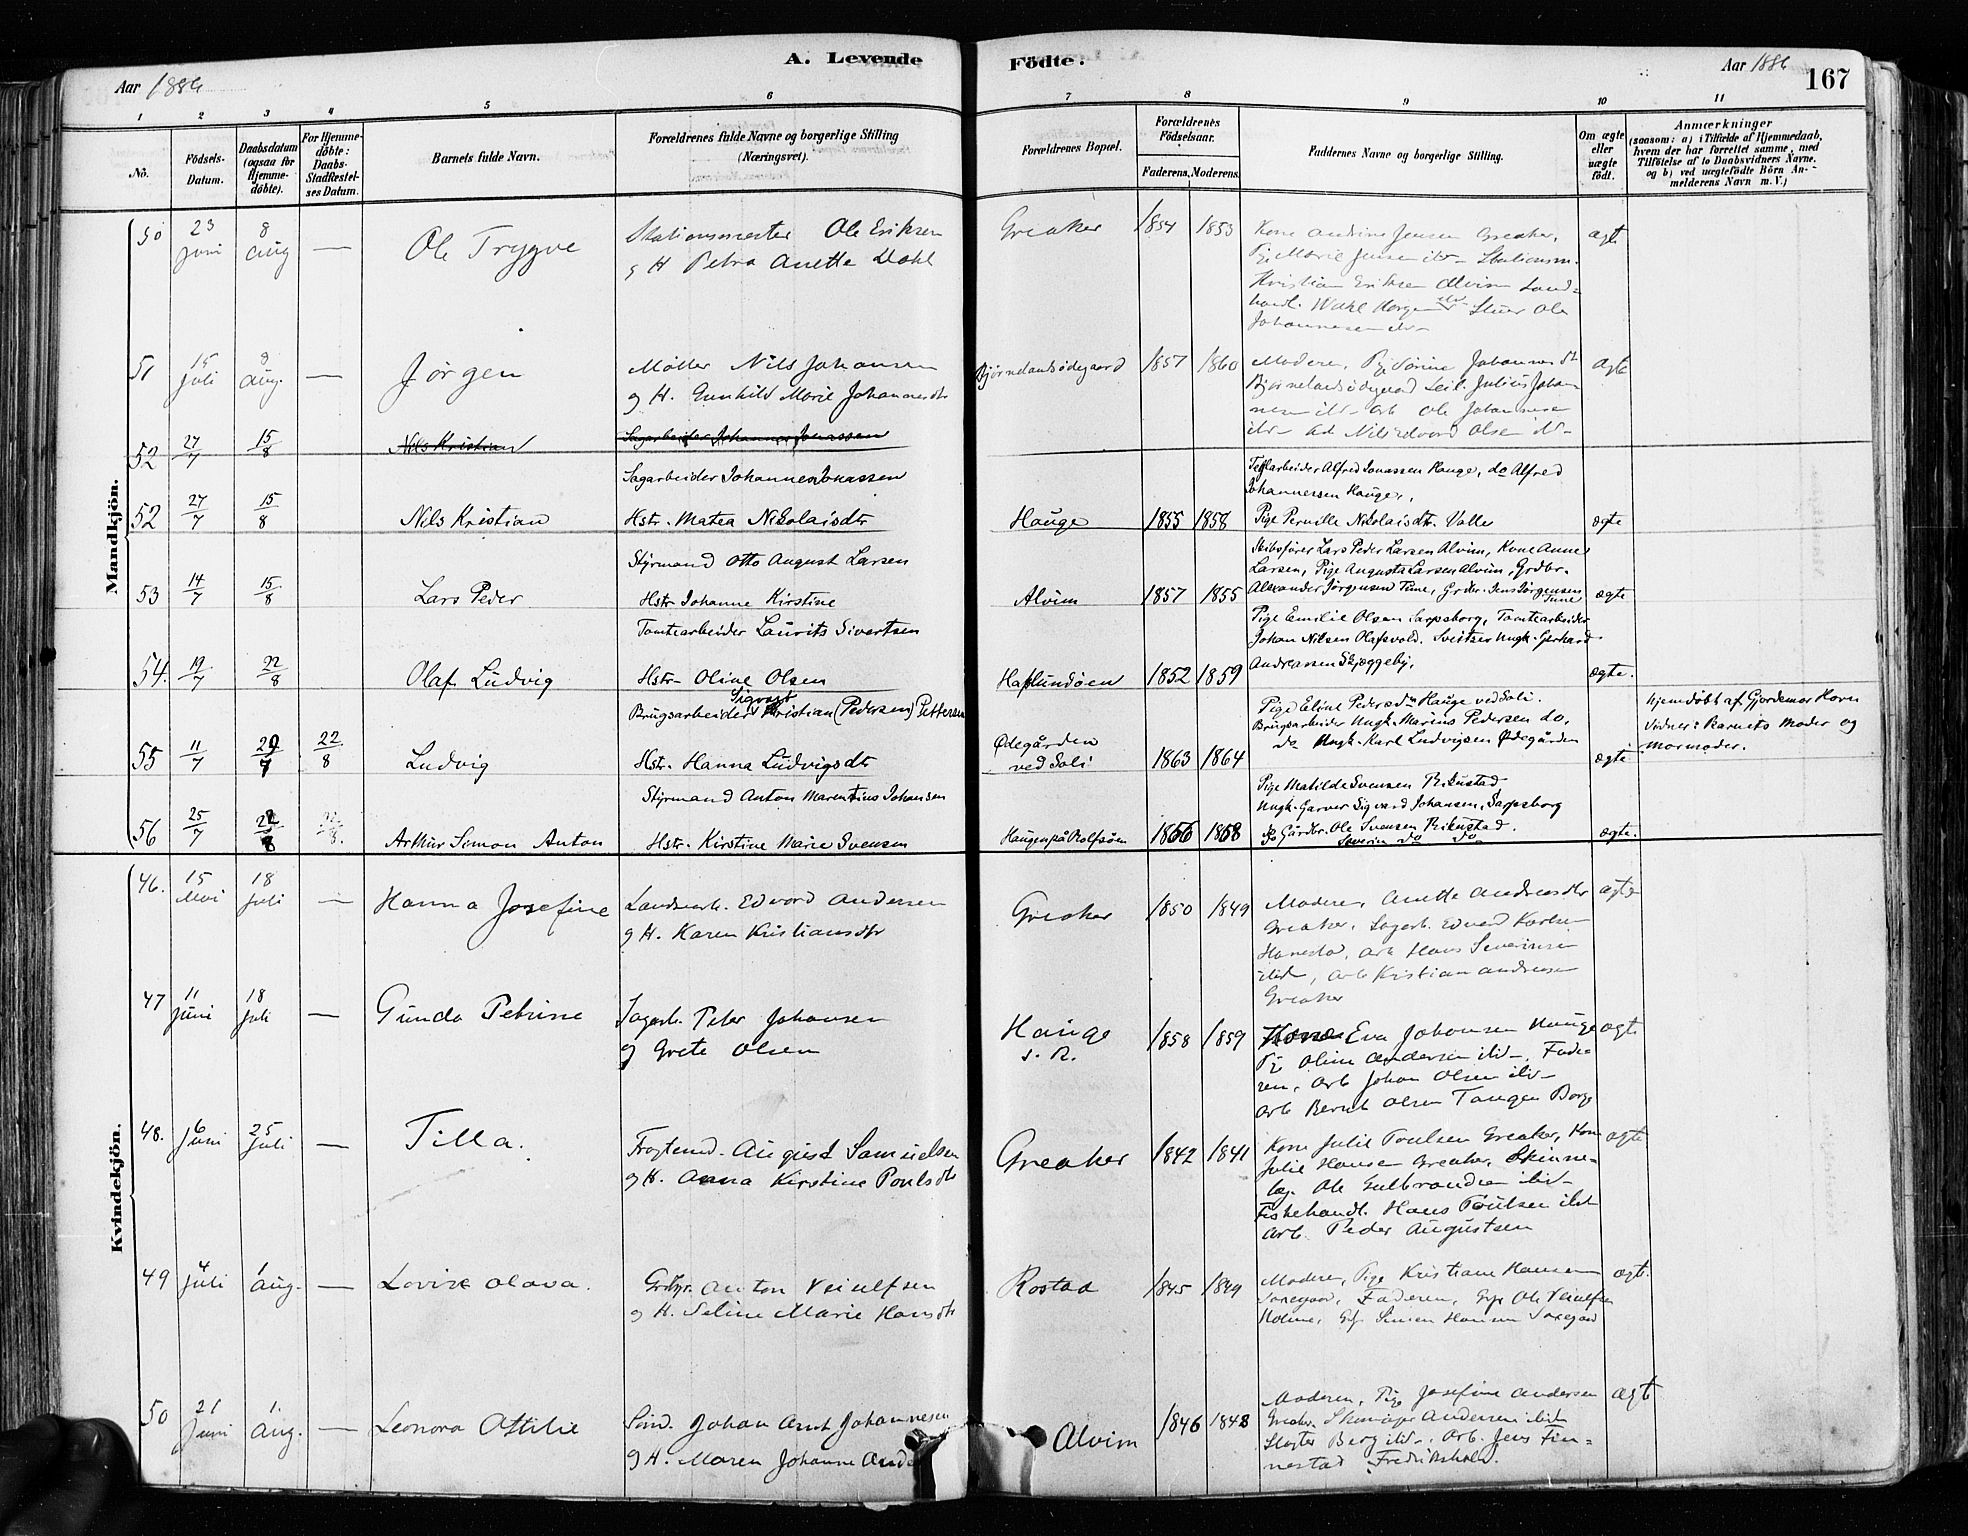 A. Levende Födte.
Aar 1886
Aar 1886
167
1 2 3 4 5 6 7 8 9 10 11
No.
Födsels-Datum.
Daabsdatum (ogsaa for Hjemme-döbte).
For Hjemme-döbte: Daabs-Stadfæstel-ses Datum.
Barnets fulde Navn.
Forældrenes fulde Navne og borgerlige Stilling (Næringsvei).
Forældrenes Bopæl.
Forældrenes Födselsaar.
Faderens. Moderens.
Faddernes Navne og borgerlige Stilling.
Om ægte eller uægte födt.
Anmærkninger
(saasom: a) i Tilfælde af Hjemmedaab, hvem der har forrettet samme, med Tilföielse af to Daabsvidners Navne, og b) ved uægtefödte Börn An-melderens Navn m. V.)
Mandkjön.
50 23 Juni 8 Aug — Ole Trygve
Stationsmester Ole Eriksen
g H Petra Anette Dahl
Greaker 1854 1853
Kone Andrine Jensen Greaker,
Pig Marie Jensen ibd- Stationsm.
Kristian Eriksen Alvim Land=
handl.
Johannesen ibd-
ægte
51 15 Juli 8 Aug. — Jørgen
Møller Nils Johansen
g H. Gunhild Marie Johannesdtr
Bjørnelandsødegaard 1857 1860
Moderen, Pig Sørine Johannesdtr
Bjørnelandsødegaard Seil. Julius Johan
nesen ibd- Arb Ole Johannesen
ibd- Nils Edvard Olsen ibd-
ægte
52 27/7 15/8 Nils Kristian
Sagarbeider Johannes Jonassen
52 27/7 15/8 Nils Kristian
Sagarbeider Johannes Jonassen
Hstr. Matea Nikolaisdtr
Hauge 1855 1858
Teglarbeider Alfred Jonassen Hauge, do Alfred
Johannessen Hauge,
Pige Pernille Nikolaisdtr. Valle
ægte
53 14/7 15/8 Lars Peder
Styrmand Otto August Larsen
Hstr Johanne Kirstine
Alvim 1857 1855
Skibsfører Lars Peder Larsen Alvim, Kone Anne
Larsen, Pige Augusta Larsen Alvim, Grdbr.
Alexander Jørgensen Tune, Grdbr. Jens Jørgensen
Tune
ægte
54. 19/7 22/8 Olaf Ludvig
Tomtearbeider Laurits Sivertsen
Hstr- Oline Olsen
Haflundøen 1852 1859
Pige Emilie Olsen Sarpsborg, Tomtearbeider
Johan Nilsen Olafsvold. Svitser Ungk. Gerhard
Andreassen Skjeggeby.
ægte.
55 11/7 22/8 Ludvig
Sigvart
Brugsarbeider Kristian (Pedersen) Pettersen
Hstr. Hanna Ludvigsdtr
Ødegården
ved Soli
1863 1864
Pige Eline Pedersdtr Hauge ved Soli.
Brugsarbeider Ungk. Marius Pedersen do,
do Ungk. Karl Ludvigsen Ødegården
ægte
Hjemdøbt af Gjordemor Horn
Vidner: Barnets Moder og
Mormoder.
56 25/7 22/8 22/8. Arthur Simon Anton
Styrmand Anton Marentius Johansen
Hstr. Kirstine Marie Svensen
Haugen på Rolfsøen 1856 1858
Pige Matilde Svensen Rikustad
Ungk. Garver Sigvard Johansen, Sarpsborg
Gårdbr. Ole Svensen Rikustad.
Severin do do
ægte.
Kvindekjön.
46. 15 Mai 18 Juli — Hanna Josefine
Landarb. Edvard Andersen
g H. Karen Kristiansdtr
Greaker 1850 1849
Moderen, Anette Andreasdtr
Greaker, Sagarb. Edvard Karlsen
Hanestad, Arb Hans Severinsen
ibid, Arb Kristian Andresen
Greaker
ægte
47 11 Juni 18 Juli — Gunda Petrine
Sagarb. Peter Johansen
g Grete Olsen
Hauge
s. R.
1858 1859
Kone Eva Johansen Hauge
Pig Oline Andersen ibd-, Fade
ren, Arb Johan Olsen ibd-
Arb Bernt Olsen Tangen Borge
ægte
48. 6 Juni 25 Juli — Tilla.
Fragtemd. August Samuelsen
g H. Anna Kirstine Poulsdtr
Greaker 1842 1841
Kone Julie Poulsen Greaker, Kone
Julie Hansen Greaker, Skinne=
læg. Ole Gulbrandsen ibid-
Fiskehandl. Hans Poulsen ibd
Arb. Peder Augustsen
ægte
49 4 Juli 1 Aug. — Lovise Olava.
Grbr. Anton Veiulfsen
g H. Seline Marie Hansdtr
Rostad 1845 1849
Moderen, Pige Kristiane Hansen
Faderen, Ole Veiulfsen
Holme, Simen Hansen
ægte.
50 21 Juni 1. Aug. — Leonora Ottilie
Smd. Johan Arnt Johannesen
g H. Maren Johanne Ande
Alvim 1846 1848
Moderen, Pig Josefine Andersen
Greaker, Andersen ibid
Slagter Berg ibd-, Arb. Jens Fin=
nestad, Fredrikshald.
ægte